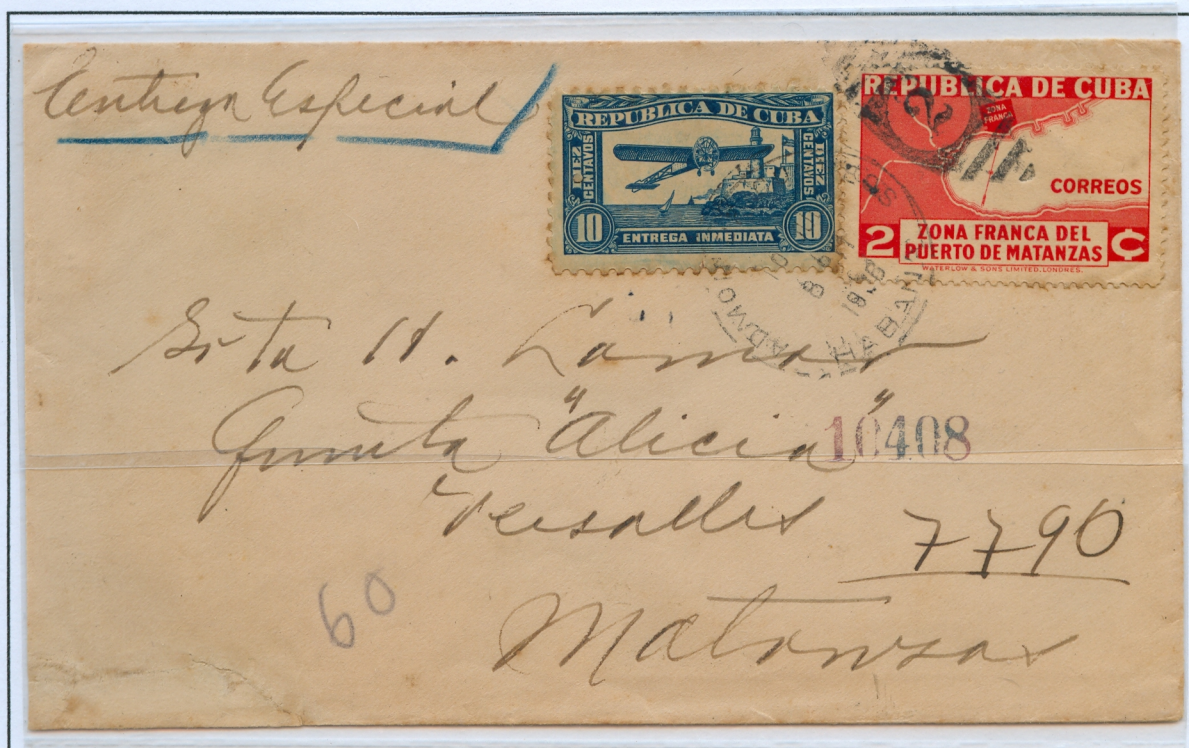 Entrega Especial
REPUBLICA DE CUBA
DIEZ CENTAVOS
DIEZ CENTAVOS
10
10
ENTREGA INMEDIATA
REPUBLICA DE CUBA
ZONA FRANCA
CORREOS
2 ZONA FRANCA DEL PUERTO DE MATANZAS ¢
WATERLOW & SONS LIMITED, LONDRES.
HABANA
Srta H. Lamar
Quinta "Alicia"
10408
Versalles
7790
60
Matanzas